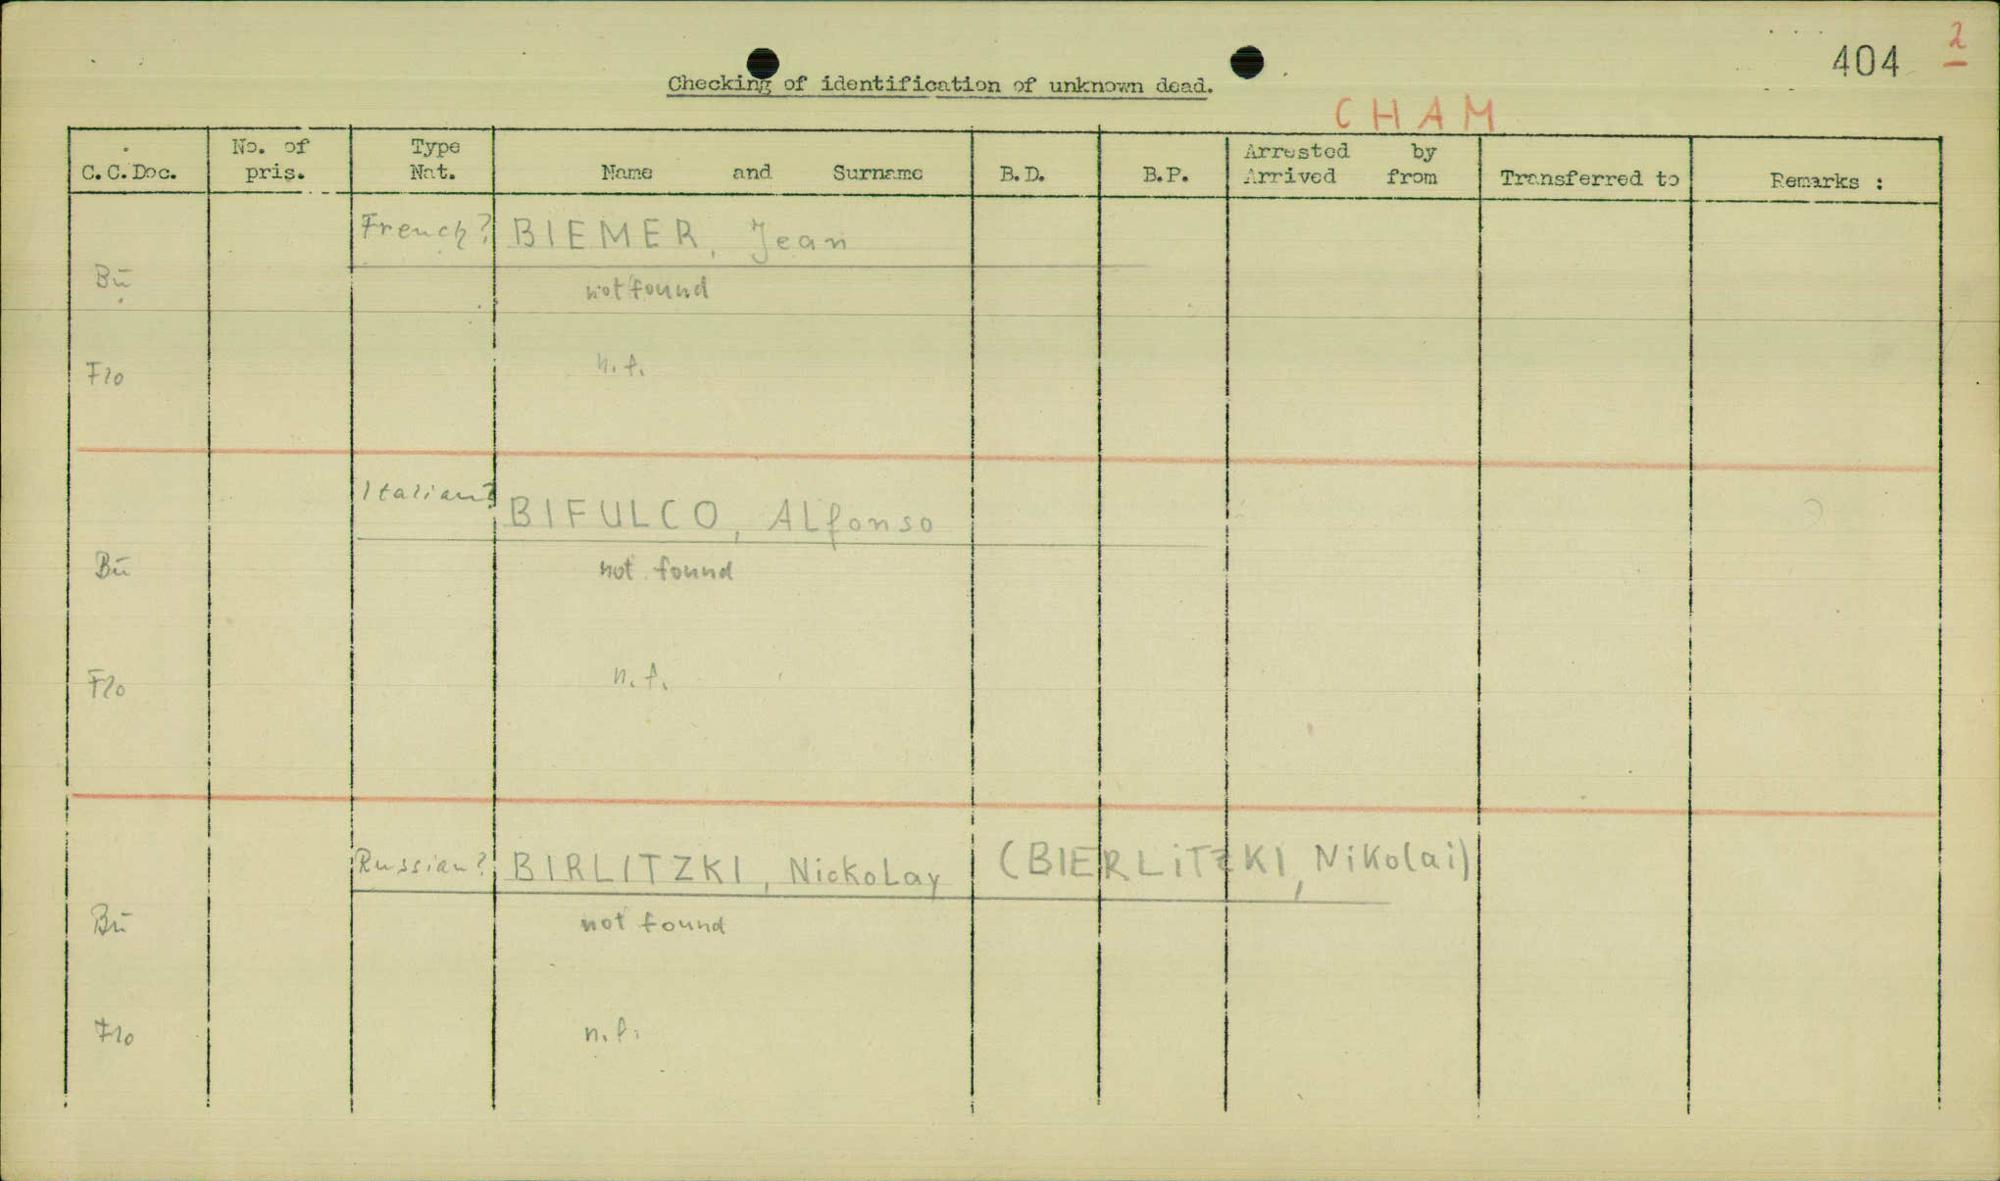 404 2
Checking of identification of unknown dead.
CHAM
C.C.Doc. No. of pris. Type Nat. Name and Surname B.D. B.P. Arrested by Arrived from Transferred to Remarks :
French? BIEMER, Jean
Bū not found
Flo n.f.
Italian? BIFULCO, ALfonso
Bū not found
Flo n.f.
Russian? BIRLITZKI, NickoLay (BIERLiTZKI, NiKolai)
Bū not found
Flo n.f.